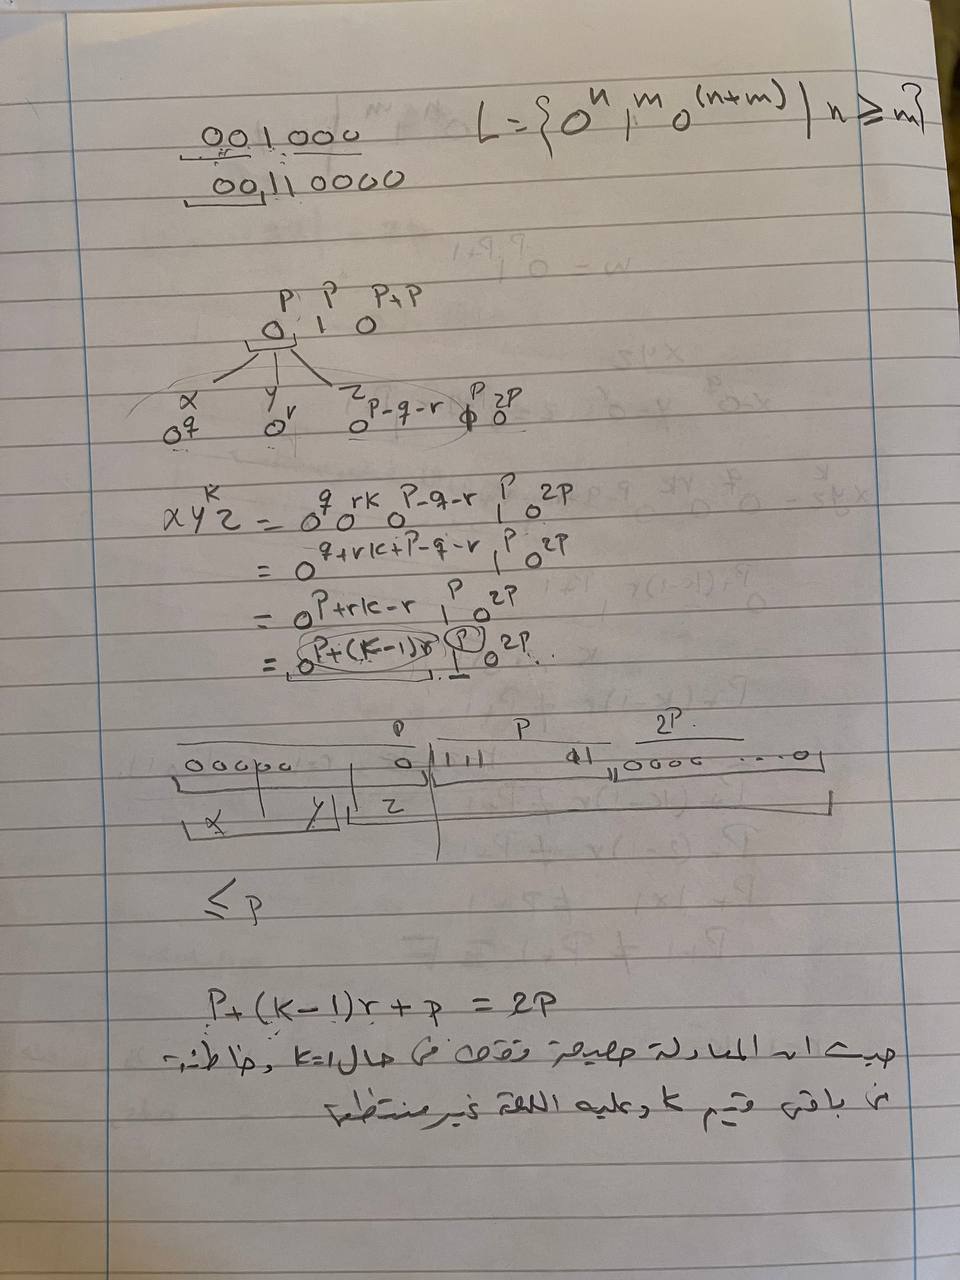 L = {0ⁿ 1ᵐ 0⁽ⁿ⁺ᵐ⁾ | n ≥ m}
001000
00110000
0ᵖ 1ᵖ 0ᵖ⁺ᵖ
x y z
0^q 0^r 0^(P-q-r) 1^P 0^2P
xy^kz = 0^q 0^rk 0^(P-q-r) 1^P 0^2P
= 0^(q+rk+P-q-r) 1^P 0^2P
= 0^(P+rk-r) 1^P 0^2P
= 0^(P+(k-1)r) 1^P 0^2P
P P 2P
00000 0 1111 11 0000 ... 0
x y z
≤ p
P+(k-1)r+p = 2P
حيث ان المعادلة صحيحة فقط في حال k=1 وخاطئة
في باقي قيم k وعليه اللغة غير منتظمة